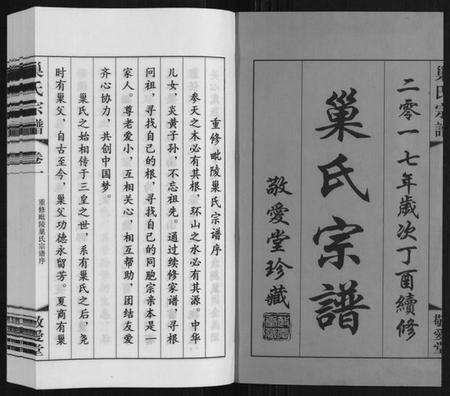 巢氏宗譜
二零一七年歲次丁酉續修
巢氏宗譜
敬愛堂珍藏
敬愛堂
重修毗陵巢氏宗谱序
参天之木必有其根，环山之水必有其源。中华
儿女，炎黄子孙，不忘祖先。通过续修家谱，寻根
问祖，寻找自己的根，寻找自己的同胞宗亲本是一
家人。尊老爱小，互相关心，相互帮助，团结友爱
齐心协力，共创中国梦。
巢氏之始相传于三皇之世，系有巢氏之后，尧
时有巢父，自古至今，巢父功德永留芳。夏商有巢
巢氏宗譜
卷一
重修毗陵巢氏宗谱序
敬愛堂